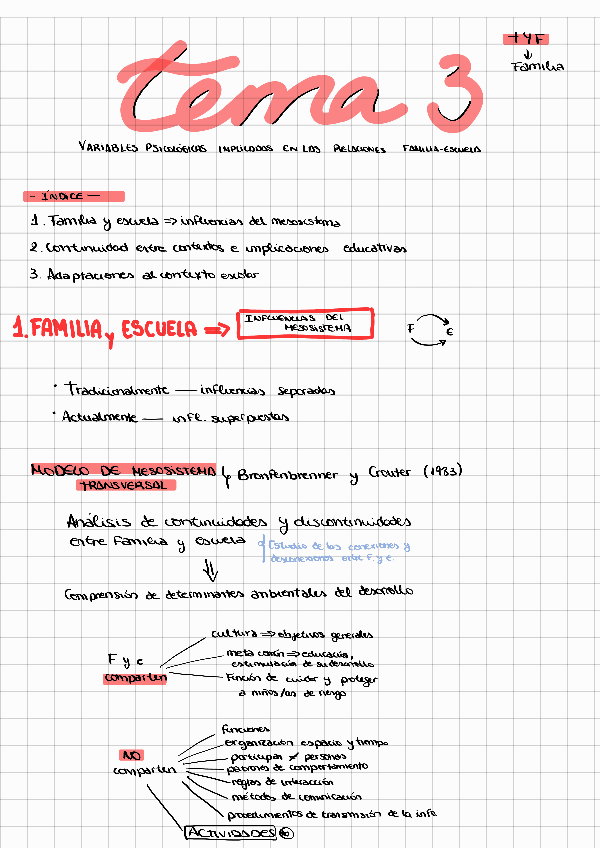 T Y F
↓
Familia
tema 3
VARIABLES PSICOLÓGICAS IMPLICADAS EN LAS RELACIONES FAMILIA-ESCUELA
- ÍNDICE -
1. Familia y escuela => influencias del mesosistema
2. Continuidad entre contextos e implicaciones educativas
3. Adaptaciones al contexto escolar
1. FAMILIA y ESCUELA => INFLUENCIAS DEL
MESOSISTEMA
F e
· Tradicionalmente — influencias separadas
· Actualmente — infl. superpuestas
MODELO DE MESOSISTEMA Bronfenbrenner y Crouter (1983)
TRANSVERSAL
Análisis de continuidades y discontinuidades
entre familia y escuela
Estudio de las conexiones y
desconexiones entre F. y e.
Comprensión de determinantes ambientales del desarrollo
F y e
comparten
cultura => objetivos generales
meta común => educación,
estimulación de su desarrollo
Función de cuidar y proteger
a niños/as de riesgo
NO
comparten
funciones
organización espacio y tiempo
participan ≠ personas
patrones de comportamiento
reglas de interacción
métodos de comunicación
procedimientos de transmisión de la info
ACTIVIDADES